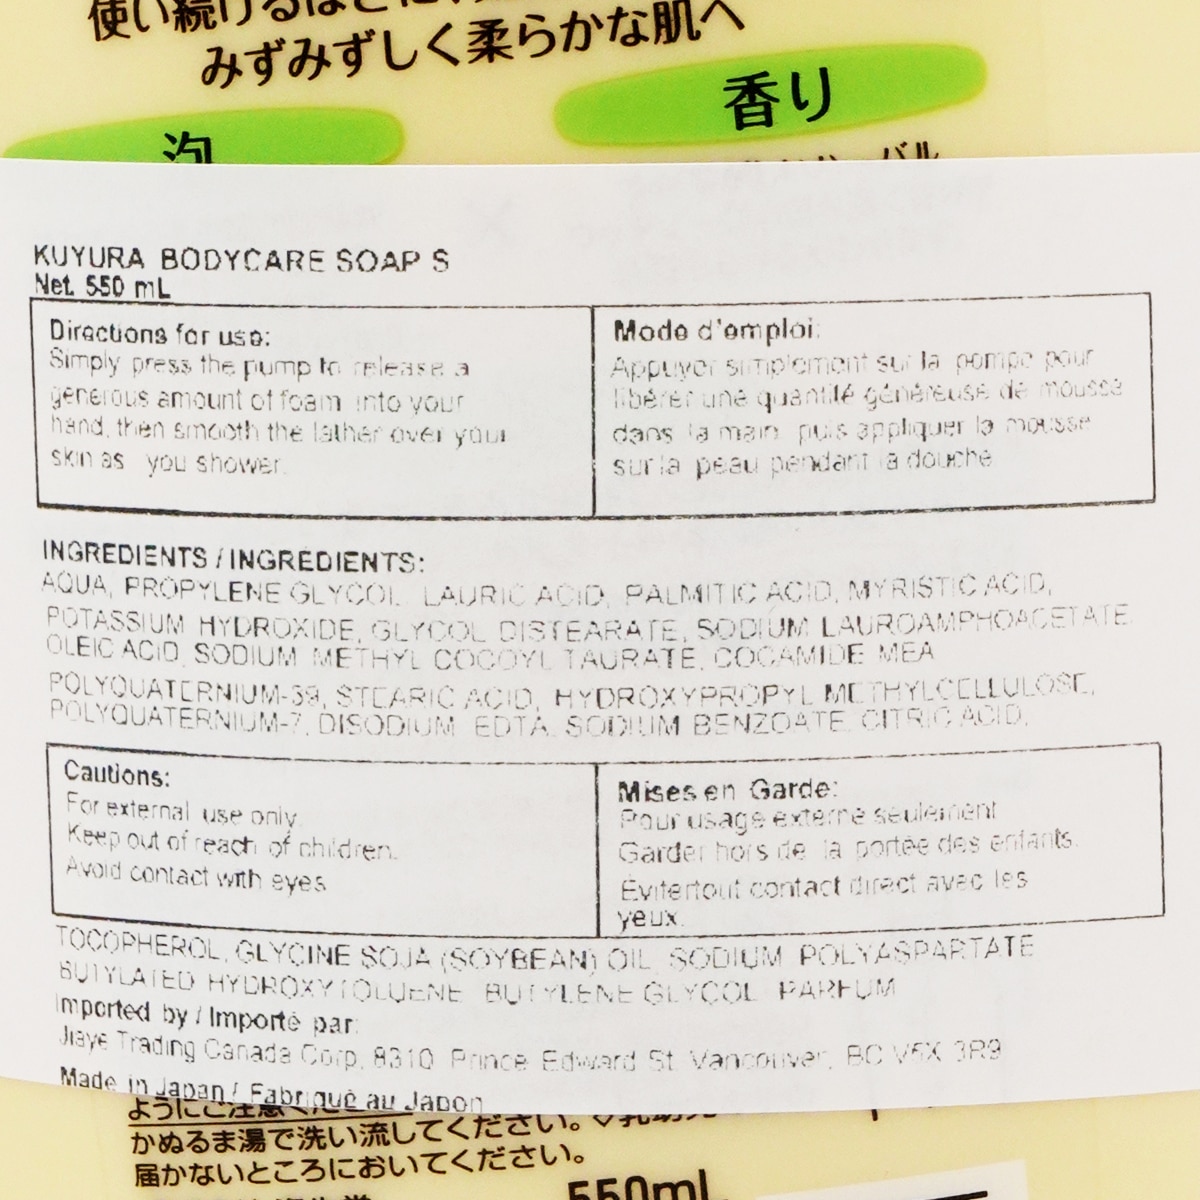 使い続けるほどに、
みずみずしく柔らかな肌へ
泡
香り
バル
KUYURA BODYCARE SOAP S
Net. 550 mL
Directions for use:
Simply press the pump to release a
generous amount of foam into your
hand, then smooth the lather over your
skin as you shower.
Mode d'emploi:
Appuyer simplement sur la pompe pour
libérer une quantité généreuse de mousse
dans la main puis appliquer la mousse
sur la peau pendant la douche
INGREDIENTS / INGRÉDIENTS:
AQUA, PROPYLENE GLYCOL, LAURIC ACID, PALMITIC ACID, MYRISTIC ACID,
POTASSIUM HYDROXIDE, GLYCOL DISTEARATE, SODIUM LAUROAMPHOACETATE
OLEIC ACID, SODIUM METHYL COCOYL TAURATE, COCAMIDE MEA
POLYQUATERNIUM-39, STEARIC ACID, HYDROXYPROPYL METHYLCELLULOSE,
POLYQUATERNIUM-7, DISODIUM EDTA, SODIUM BENZOATE, CITRIC ACID,
Cautions:
For external use only.
Keep out of reach of children.
Avoid contact with eyes
Mises en Garde:
Pour usage externe seulement
Garder hors de la portée des enfants.
Évitertout contact direct avec les
yeux.
TOCOPHEROL, GLYCINE SOJA (SOYBEAN) OIL, SODIUM POLYASPARTATE
BUTYLATED HYDROXYTOLUENE BUTYLENE GLYCOL PARFUM
Imported by / Importé par:
Jiaye Trading Canada Corp, 8310 Prince Edward St. Vancouver, BC V5X 3R9
Made in Japan / Fabriqué au Japon
ようにご注意ください
かぬるま湯で洗い流してください。
届かないところにおいてください。
550mL